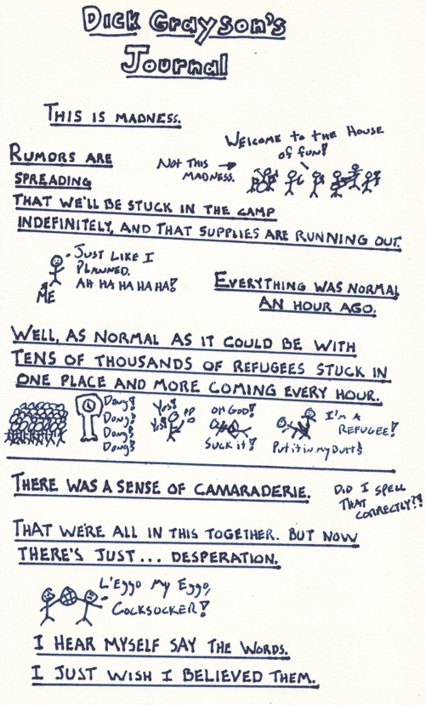 Dick Grayson's
Journal
This is madness.
Welcome to the House
of fun!
Not this
madness.
Rumors are
spreading
that we'll be stuck in the camp
indefinitely, and that supplies are running out.
Just like I
planned.
Ah ha ha ha ha!
Me
Everything was normal
an hour ago.
Well, as normal as it could be with
tens of thousands of refugees stuck in
one place and more coming every hour.
Dong!
Dong!
Dong!
Dong!
Yes!
Yes!
Oh God!
Suck it!
I'm a
Refugee!
Put it in my Butt!
There was a sense of camaraderie.
Did I spell
that
correctly?!
That we're all in this together. But now
there's just... desperation.
L'Eggo my Eggo,
Cocksucker!
I hear myself say the words.
I just wish I believed them.